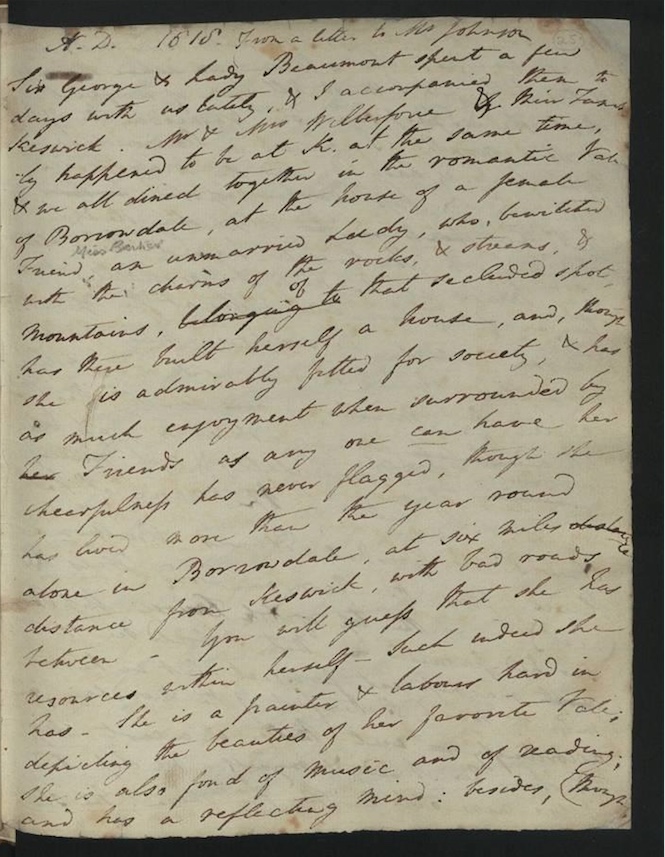 A. D. 1818. From a letter to Mrs Johnson
Sir George & Lady Beaumont spent a few
days with us lately, & I accompanied them to
Keswick. Mr & Mrs Wilberforce & their Fami-
-ly happened to be at K. at the same time,
& we all dined together in the romantic Vale
of Borrowdale, at the house of a female
Miss Barker
Friend, an unmarried Lady, who, bewitched
with the charms of the rocks, & streams, &
mountains, belonging to of that secluded spot,
has there built herself a house, and, though
she is admirably fitted for society, & has
as much enjoyment when surrounded by
her Friends as any one can have, her
chearfulness has never flagged, though she
has lived more than the year round
alone in Borrowdale, at six miles distance
distance from Keswick, with bad roads
between – You will guess that she has
resources within herself – Such indeed she
has – She is a painter & labours hard in
depicting the beauties of her favorite Vale;
she is also fond of music and of reading;
and has a reflecting mind: besides, (though